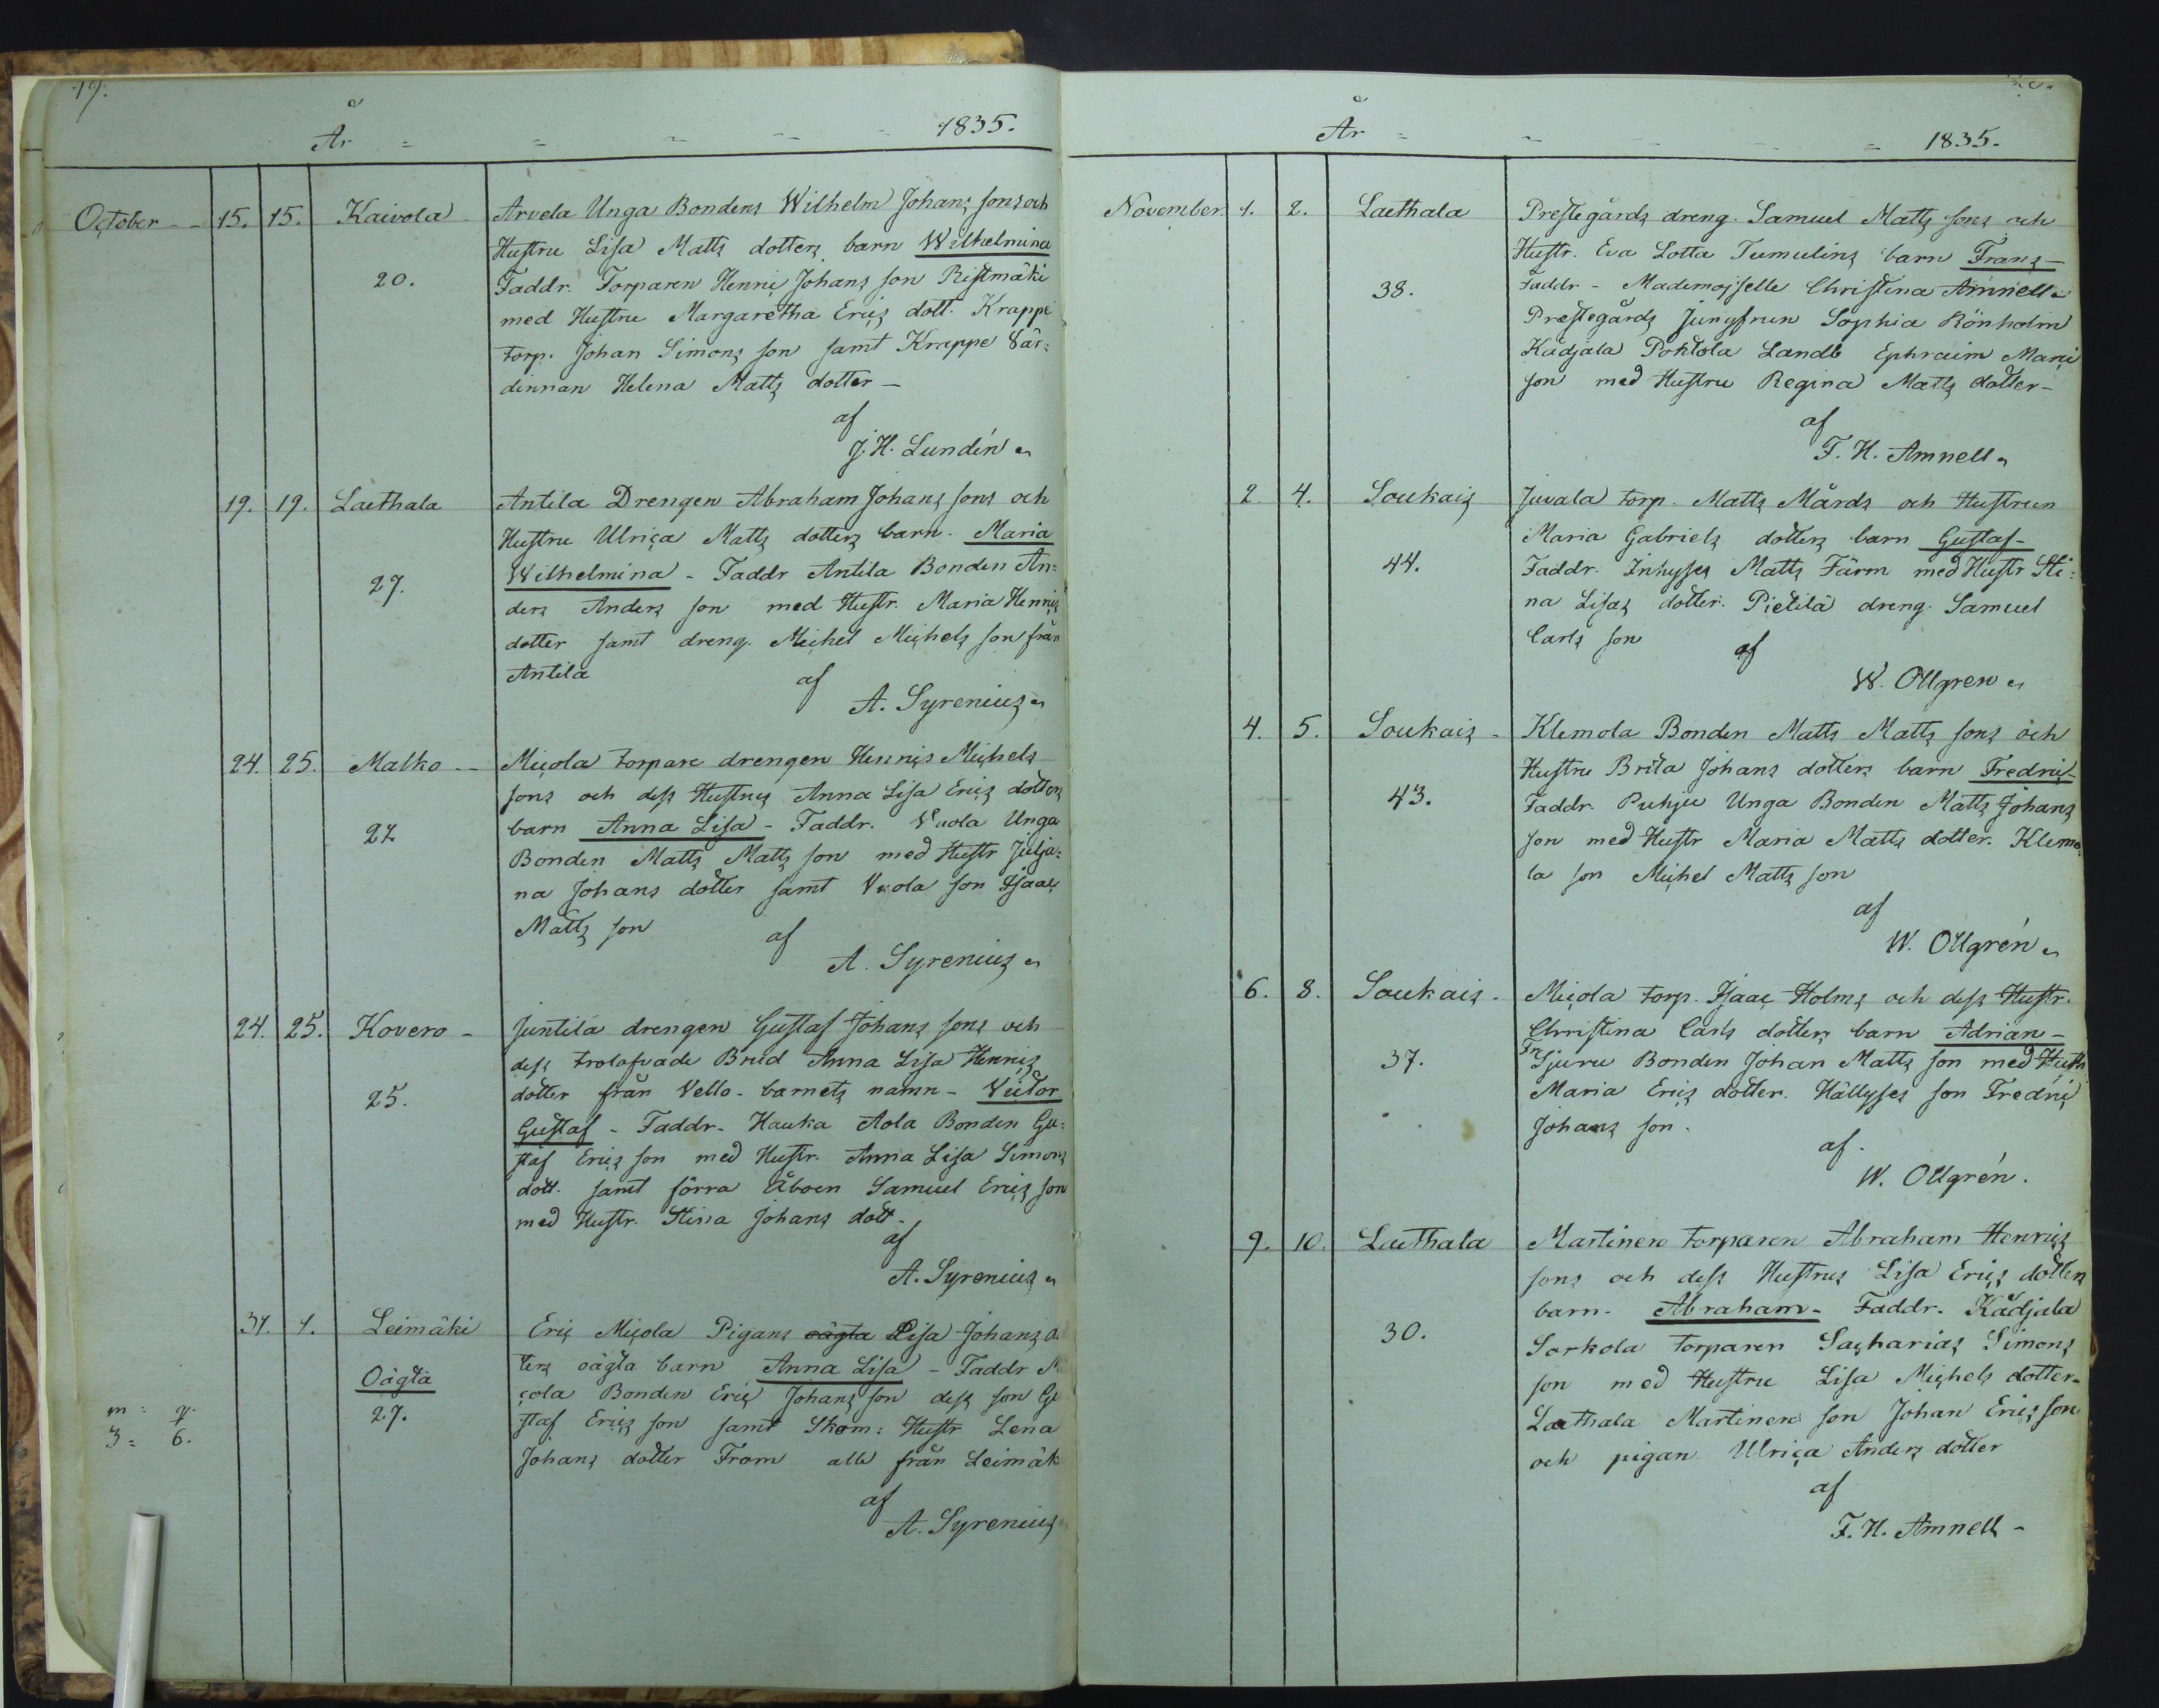 19.
År = = = - - = 1835.
October - - 15. 15. Kaivola Arvela Unga Bondens Wilhelm Johans sons och
Hustru Lisa Matts dotters barn Wilhelmina
20. Faddr. Torparen Henric Johans son Ristmäki
med Hustru Margaretha Erics dott. Krappi
torp. Johan Simons son samt Krappe Vär=
dinnan Helena Matts dotter –
af
J. H. Lundén
19. 19. Laethala Antila Drengen Abraham Johans sons och
Hustru Ulrica Matts dotters barn. Maria
27. Wilhelmina - Faddr Antila Bonden An=
ders Anders son med Hustr. Maria Henrics
dotter samt dreng. Michel Michels son från
Antila af
A. Syrenius
24. 25. Malko - - Micola torpare drengen Henrics Michels
sons och dess Hustrus Anna Lisa Erics dotters
27 barn Anna Lisa - Faddr. Vuola Unga
Bonden Matts Matts son med Hustr Julja=
na Johans dotter samt Vuola son Isaac
Matts son af
A. Syrenius
24. 25. Kovero - Juntila drengen Gustaf Johans sons och
dess trolofvade Brud Anna Lisa Henrics
25. dotter från Vello - barnets namn - Victor
Gustaf - Faddr - Hauka Aola Bonden Gu=
staf Erics son med Hustr. Anna Lisa Simons
dott. samt förra Åboen Samuel Erics son
med Hustr. Stina Johans dott.
af
A. Syrenius
31. 1. Leimäki Eric Micola Pigans oägta Lisa Johans
ters oägta barn Anna Lisa - Faddr
Oägta cola Bonden Eric Johans son dess son Gu
m = q.
27. staf Erics son samt Skom: Hustr Lena
3 = 6.
Johans dotter From alla från Leimäk
af
A. Syrenius
År = - - - = 1835.
November. 1. 2. Laethala Prestegårds dreng. Samuel Matts sons och
Hustr. Eva Lotta Tumulins barn Frans –
38. Faddr - Mademojselle Christina Amnell
Prestegårds Jungfrun Sophia Rönholm
Kådjala Pohtola Landb Ephraim Marc
son med Hustru Regina Matts dotter –
af
F. H. Amnell
2. 4. Soukais Juvala torp. Matts Mårds och Hustrun
Maria Gabriels dotters barn Gustaf –
44. Faddr. Inhyses Matts Färm med Hustr Sti=
na Lisas dotter. Pietilä dreng. Samuel
Carls son af
W. Ollgren
4. 5. Soukais - Klemola Bonden Matts Matts sons och
Hustru Brita Johans dotters barn Fredric –
43. Faddr. Puhju Unga Bonden Matts Johans
son med Hustr Maria Matts dotter. Klemo
la son Michel Matts son
af
W. Ollgrén
6. 8. Soukais - Micola torp. Isaac Holms och dess Hustr.
Christina Carls dotters barn Adrian –
37. Sjuru Bonden Johan Matts son med Hustr
Maria Erics dotter. Hällyses son Fredric
Johans son.
af.
W. Ollgrén.
9. 10. Laethala Martinen torparen Abraham Henrics
sons och dess Hustrus Lisa Erics dotters
barn - Abraham - Faddr. Kådjala
30. Sorkola torparen Sacharias Simons
son med Hustru Lisa Michels dotter -
Laethala Martinen son Johan Erics son
och pigan Ulrica Anders dotter
af
F. H. Amnell -